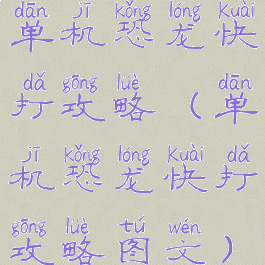 dān jī kǒng lóng kuài
单机恐龙快
dǎ gōng lüè dān
打攻略（单
jī kǒng lóng kuài dǎ
机恐龙快打
gōng lüè tú wén
攻略图文）